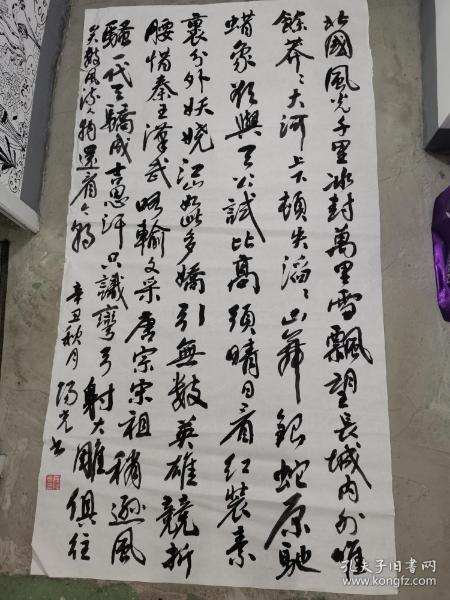 北國風光千里冰封萬里雪飄望長城内外惟
餘莽〻大河上下頓失滔〻山舞銀蛇原馳
蜡象欲與天公試比高須晴日看红裝素
裹分外妖娆江山如此多嬌引無數英雄競折
腰惜秦王漢武略輸文采唐宗宋祖稍遜風
騷一代天驕成吉思汗只識彎弓射大雕俱往
矣數風流人物還看今朝
辛丑秋月阳光书
孔夫子旧书网
www.kongfz.com